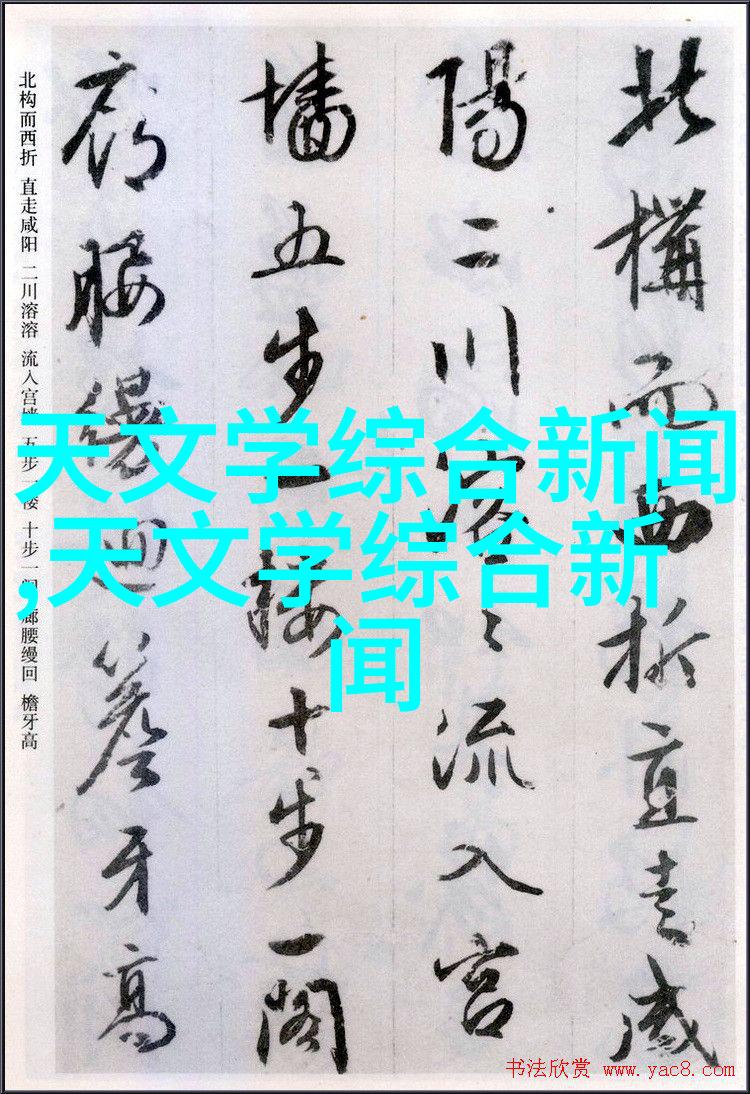 北構而西折直走咸
陽二川溶々流入宮
墻五步一楼十步一閣
廊腰縵迴簷牙高
北构而西折 直走咸阳 二川溶溶 流入宫墙 五步一楼 十步一阁 廊腰缦回 檐牙高
天文学综合新闻
,天文学综合新
闻
书法欣赏 www.yac8.com